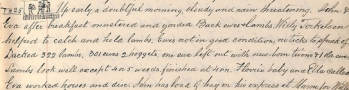 T 25. Up early a doubtful morning, cloudy and rain threatening. John &
Eva after breakfast mustered and yarded Back ewes & lambs Willy Torkelson
helped to catch and hold lambs. Ewes not in good condition, no ticks
Docked 322 lambs. 301 ewes 2 hoggets, one ewe left out with new born twins
Lambs look well except 4 or 5 ewes finished at noon. baby and Ella called
Eva worked horses and John has load of hay on his express at